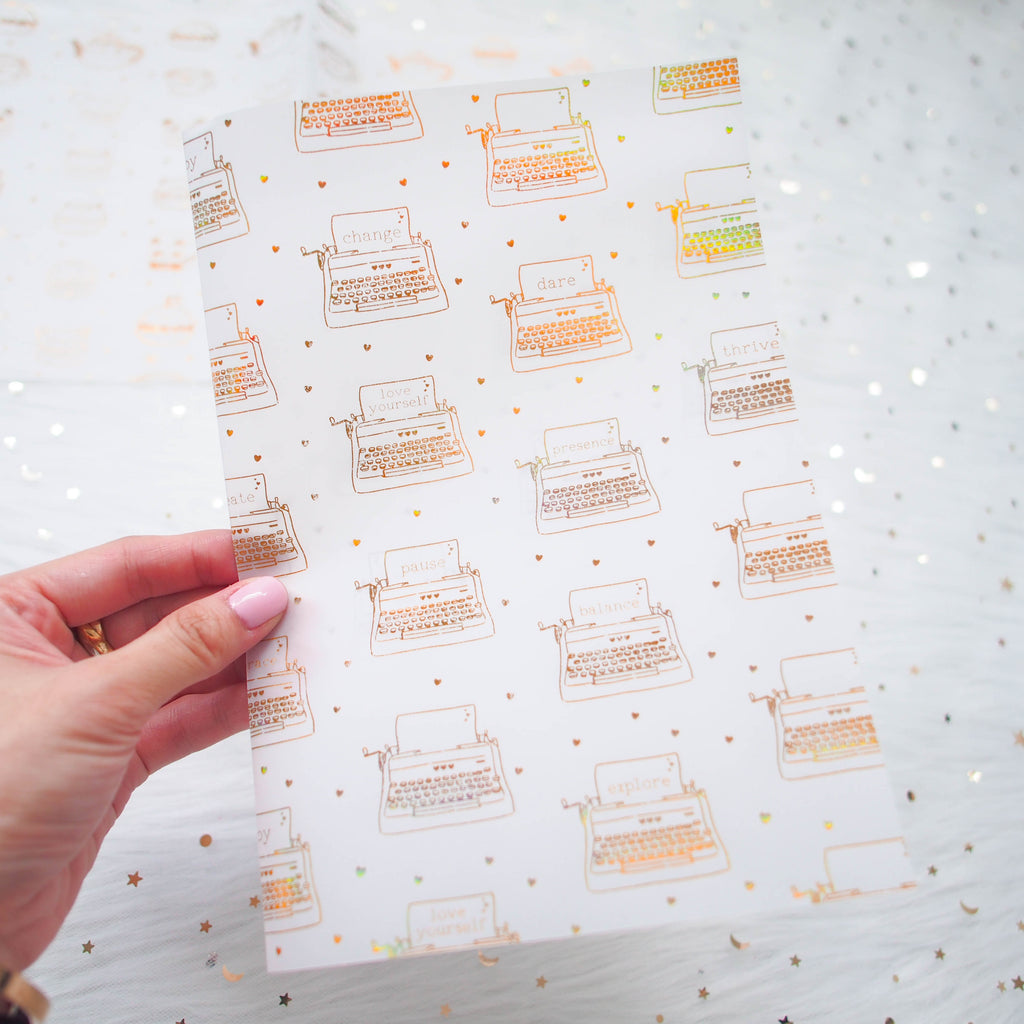 change
dare
thrive
love
yourself
presence
ate
pause
balance
explore
love
yourself